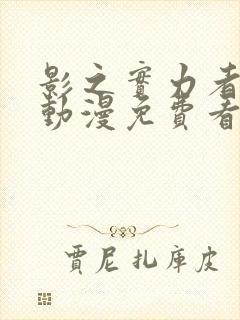 影之實力者
動漫免費看
賈尼扎庫皮